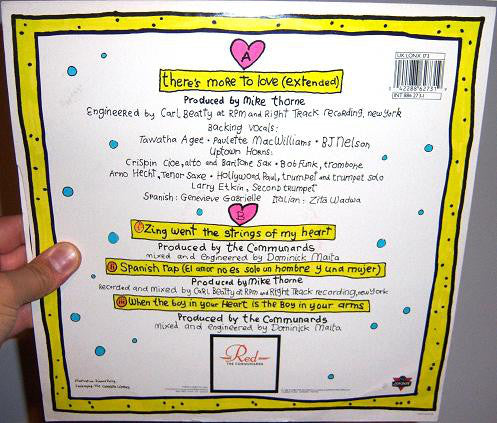 UK LONX 173
5 042288 627319
INT 886 273-1
A
there's more to love (extended)
Produced by Mike Thorne
Engineered by Carl Beatty at RPM and Right Track recording, new York
Backing vocals:
Tawatha Agee • Paulette MacWilliams • BJ Nelson
Uptown Horns:
Crispin Cioe, alto and Baritone Sax • Bob Funk, trombone
Arno Hecht, Tenor Saxe • Hollywood Paul, trumpet and trumpet solo
Larry Etkin, Second trumpet
Spanish: Genevieve Gabrielle Italian: Zita Wadwa
B
i Zing went the strings of my heart
Produced by the Communards
mixed and engineered by Dominick Maita
ii Spanish rap (El amor no es solo un hombre y una mujer)
Produced by Mike Thorne
Recorded and mixed by Carl Beatty at RPM and Right Track recording, new york
iii When the boy in your Heart is the Boy in your arms
Produced by the Communards
mixed and engineered by Dominick Maita
Red
THE COMMUNARDS